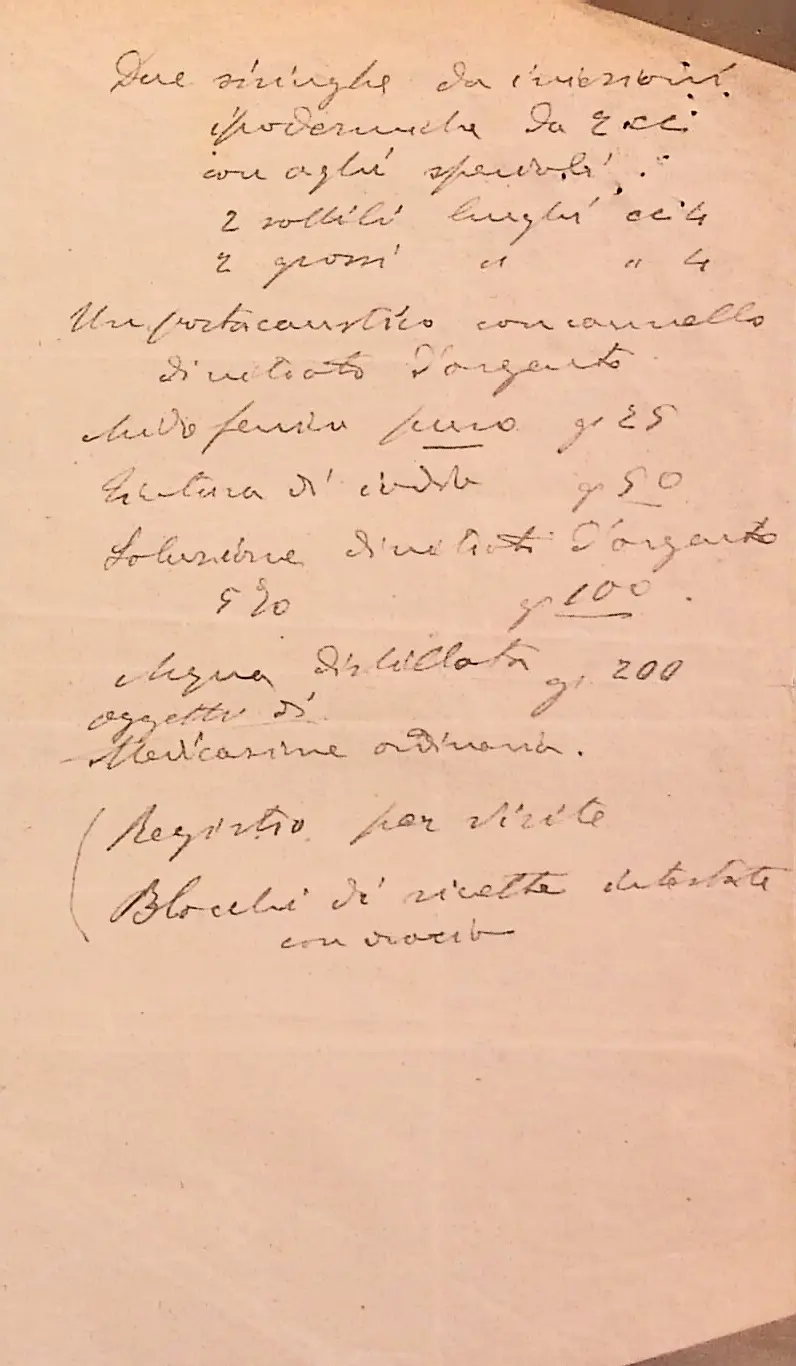 Due siringhe da iniezioni
ipodermiche da 2 cc:
con aghi speciali:
2 sottili lunghi cc: 4
2 grossi " " 4
Un portacaustico con cannello
di nitrato d'argento
Acido fenico puro gr 25
Tintura di iodio gr 50
Soluzione di nitrato d'argento
5 % gr 100.
Acqua distillata gr. 200
oggetti di
Medicazione ordinaria.
Registro per visite
Blocchi di ricette intestate
con